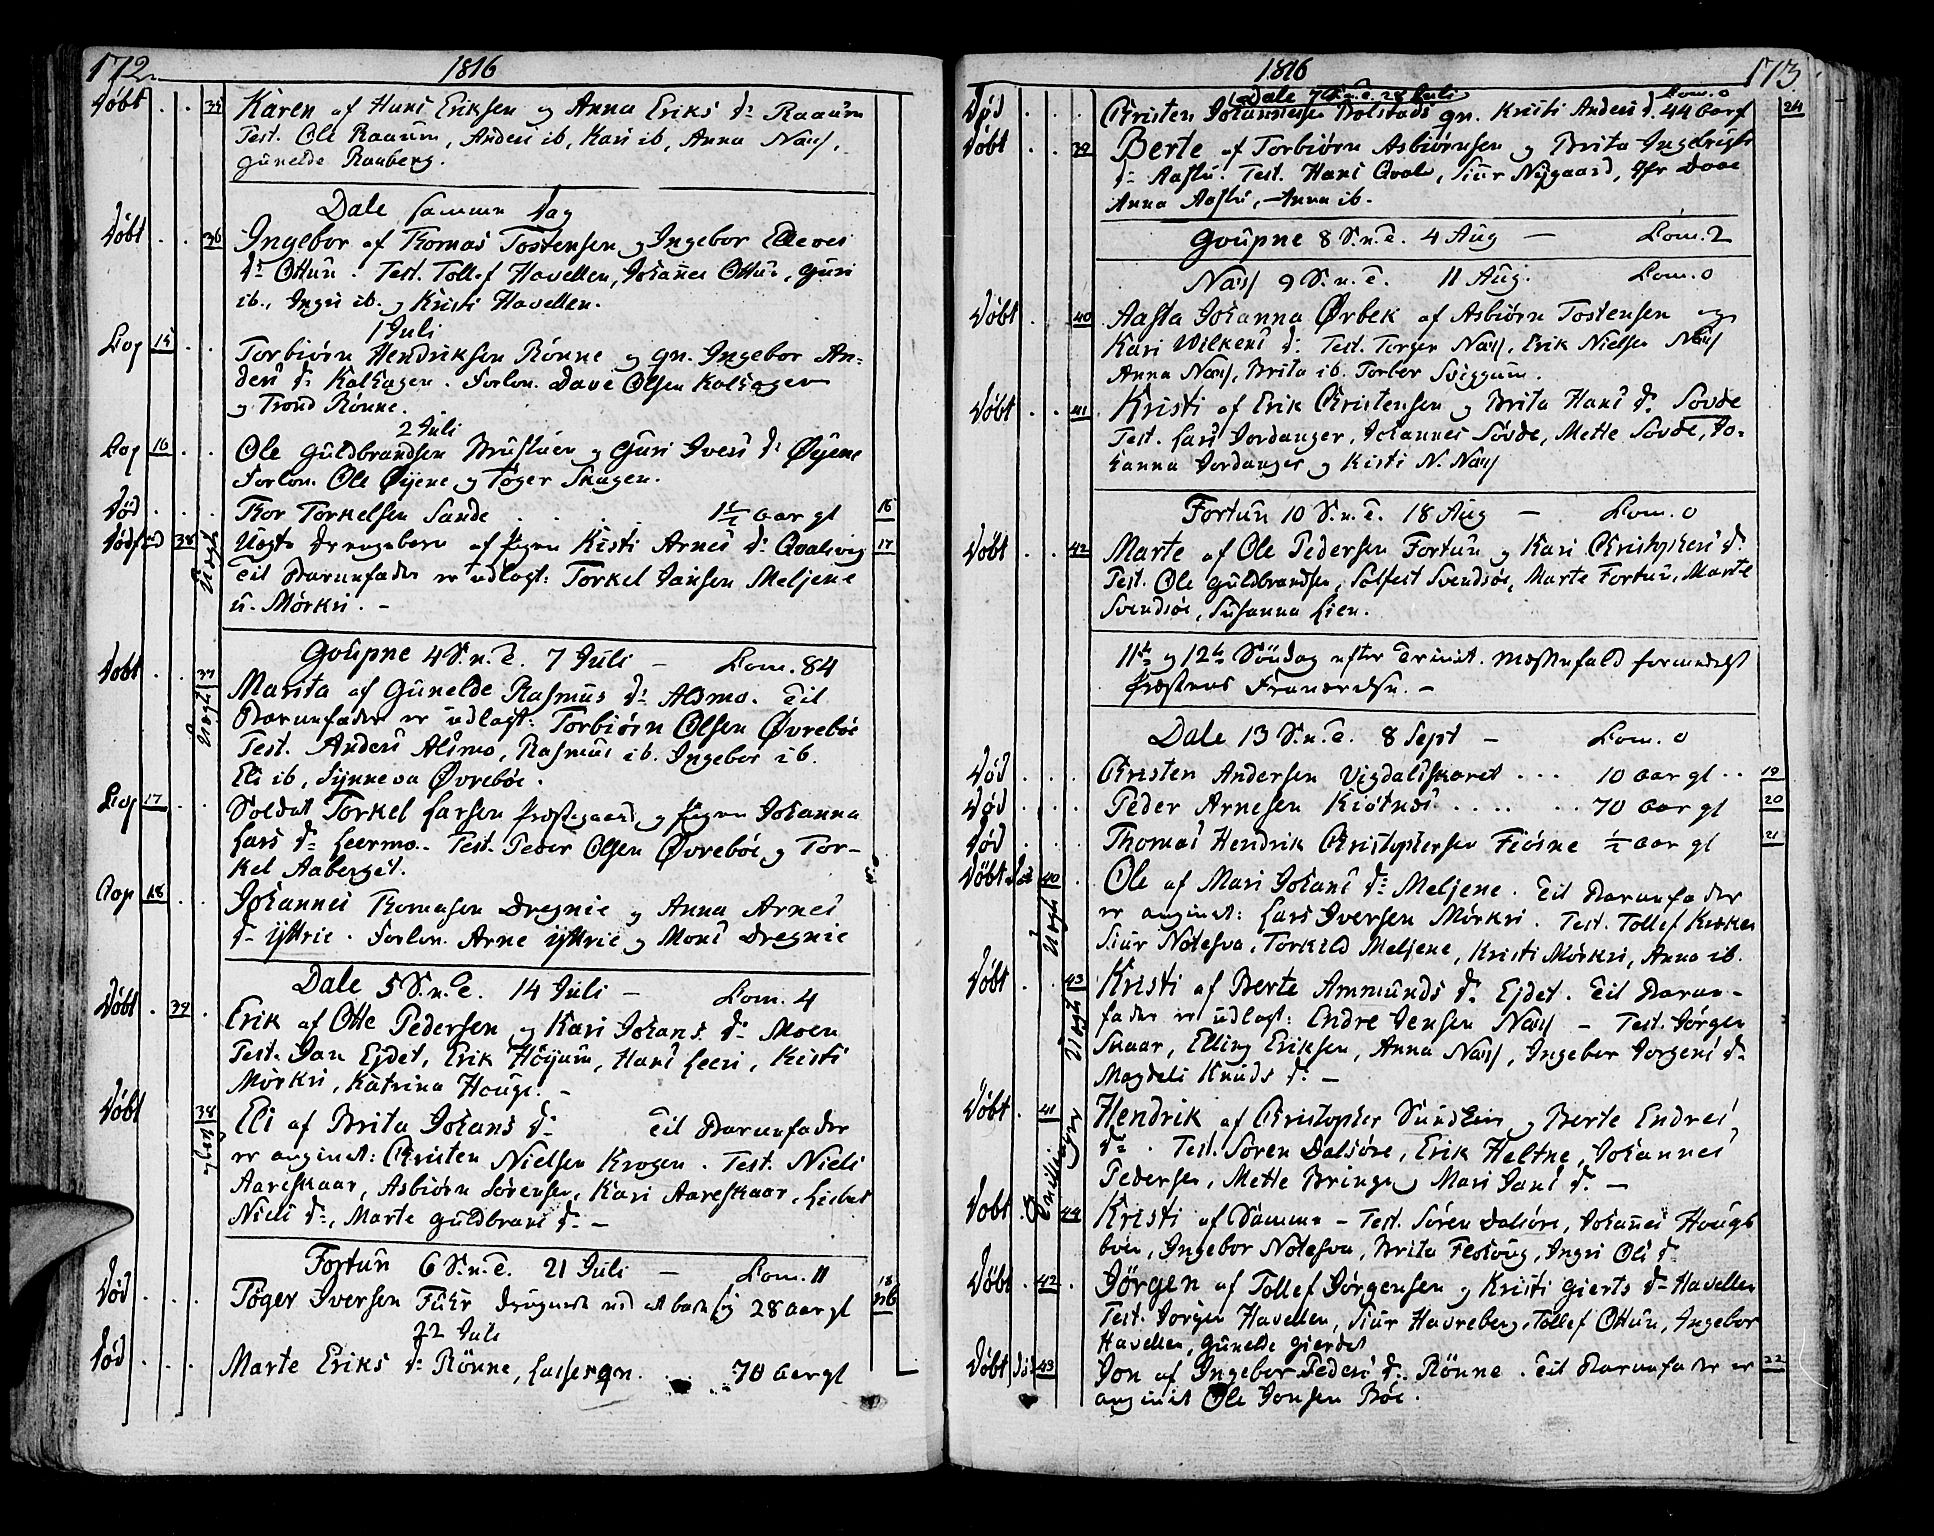 172. 1816
Døbt 35 Karen af Hans Eriksen og Anna Eriks dr Raaum
Test. Ole Raaum, Anders ib, Kari ib, Anna Næss,
Gunelde Rauberg.
Dale samme Dag
Døbt 36 Ingebor af Thomas Tostensen og Ingebor Elleves
dr Ottun. Test. Tollef Havellen, Johannes Ottun, Guri
ib., Ingri ib. og Kristi Havellen.
1 Juli
Cop 15 Torbiørn Hendriksen Rønne og qn. Ingebor An-
ders dr Kolhagen. Forlov. Dave Olsen Kolhagen
og Trond Rønne.
2 Juli
Cop 16 Ole Guldbrandsen Brustuen og Guri Ivers dr Øyene
Forlov. Ole Øyene og Tøger Skagen.
Død Thor Torkelsen Sande 1½ aar gl 16
Dødfød 38 Uægte drengebarn af Pigen Kisti Arnes dr Qvalevig 17
Til Barnefader er udlagt: Torkel Jansen Meljene
u. Mørkri. -
Uægte
Goupne 4 S.n.T. 7 Juli - Com. 84
Døbt 37 Marita af Gunelde Rasmus dr Alsmo. Til
Barnefader er udlagt: Torbiørn Olsen Øvrebøe
Test. Anders Alsmo, Rasmus ib. Ingebor ib.
Eli ib, Synneva Øvrebøe.
Uægte
Cop 17 Soldat Torkel Larsen Præstegaard og Pigen Johanna
Lars dr Leermo. Test. Peder Olsen Øvrebøe og Tor-
kel Aaberget.
Cop 18 Johannes Thomasen Dregnie og Anna Arnes
dr Yttrie. Forlov. Arne Yttrie og Mons Dregnie
Dale 5 S.n.T. 14 Juli - Com. 4
Døbt 39 Erik af Otte Pedersen og Kari Johans dr Moen
Test. Jan Ejdet, Erik Høyum, Hans Leeri, Kristi
Mørkri, Katrina Houge. -
Døbt 38 Eli af Brita Johans dr Til Barnefader
er angivet: Christen Nielsen Krogen. Test. Niels
Aareskaar, Asbiørn Sørensen, Kari Aareskaar, Lisbet
Niels dr, Marte Guldbrans dr -
Uægte
Fortun 6 S.n.T. 21 Juli - Com. 11
Død Tøger Iversen Fuhr 28 aar gl 18
22 Juli
Død Marte Eriks dr Rønne, qn. 70 aar gl
1816 173
Dale 7 S.n.T. 28 Juli Com. 0
Død Christen Johannesen Bolstads qn. Kristi Anders d. 44 aar 24
Døbt 39 Berte af Torbiørn Asbiørnsen og Brita Ingebrigts
dr Aasta. Test. Hans Qvale, Siur Nygaard,
Anna Aasta, Anna ib.
Goupne 8 S.n.T. 4 Aug - Com. 2
Næss 9 S.n.T. 11 Aug. Com. 0
Døbt 40 Aasta Johanna Ørbek af Asbiørn Tostensen og
Kari Wilkens dr Test. Torger Næss, Erik Nielsen Næss
Anna Næss, Brita ib. Torber Sviggum.
Døbt 41 Kristi af Erik Christensen og Brita Hans dr Søvde
Test. Lars Jordanger, Johannes Søvde, Mette Søvde, Jo-
hanna Jordanger og Kisti N. Næss
Fortun 10 S.n.T. 18 Aug - Com. 0
Døbt 42 Marte af Ole Pedersen Fortun og Kari Christophers dr
Test. Ole Guldbrandsen, Solfest Svendsøe, Marte Fortun, Marte
Svendsøe, Susanna Lien.
11te og 12te Søndag efter Trinit. Messefald formedelst
Præstens Fraværelse. -
Dale 13 S.n.T. 8 Sept - Com. 0
Død Christen Andersen Vigdalskaret 10 aar gl 19
Død Peder Arnesen Kiøtnæs 70 aar gl 20
Død Thomas Hendrik Christophersen Fiøsne ½ aar gl 21
Døbt 40 Ole af Mari Johans dr Meljene. Til Barnefader
er angivet: Lars Iversen Mørkri. Test. Tollef
Siur Notesva, Torkild Meljene, Kristi Mørkri, Anna ib.
Uægte
Døbt 43 Kristi af Berte Ammunds dr Ejdet. Til Barne-
fader er udlagt: Endre Jensen Næss - Test. Jørgen
Skaar, Elling Eriksen, Anna Næss, Ingebor Jørgens dr
Magdeli Knuds dr -
Uægte
Døbt 41 Hendrik af Christopher Sundheim og Berte Endres
dr. Test. Søren Dalsøre, Erik Heltne, Johannes
Pedersen, Mette Bringe og Mari Jans dr -
Tvillinger
Døbt 44 Kristi af Samme - Test. Søren Dalsøre, Johannes Houge
Ingebor Notesva, Brita Flohoug, Ingri Ols dr
Døbt 42 Jørgen af Tollef Jørgensen og Kristi Gierts dr Havellen
Test. Jørgen Havellen, Siur Havreberg, Tollef Ottun, Ingebor
Havellen, Gunelde Gierdet
Døbt død 43 Jon af Ingebor Peders dr Rønne. Til Barnefader er 22
angivet Ole Jonsen Bøe.